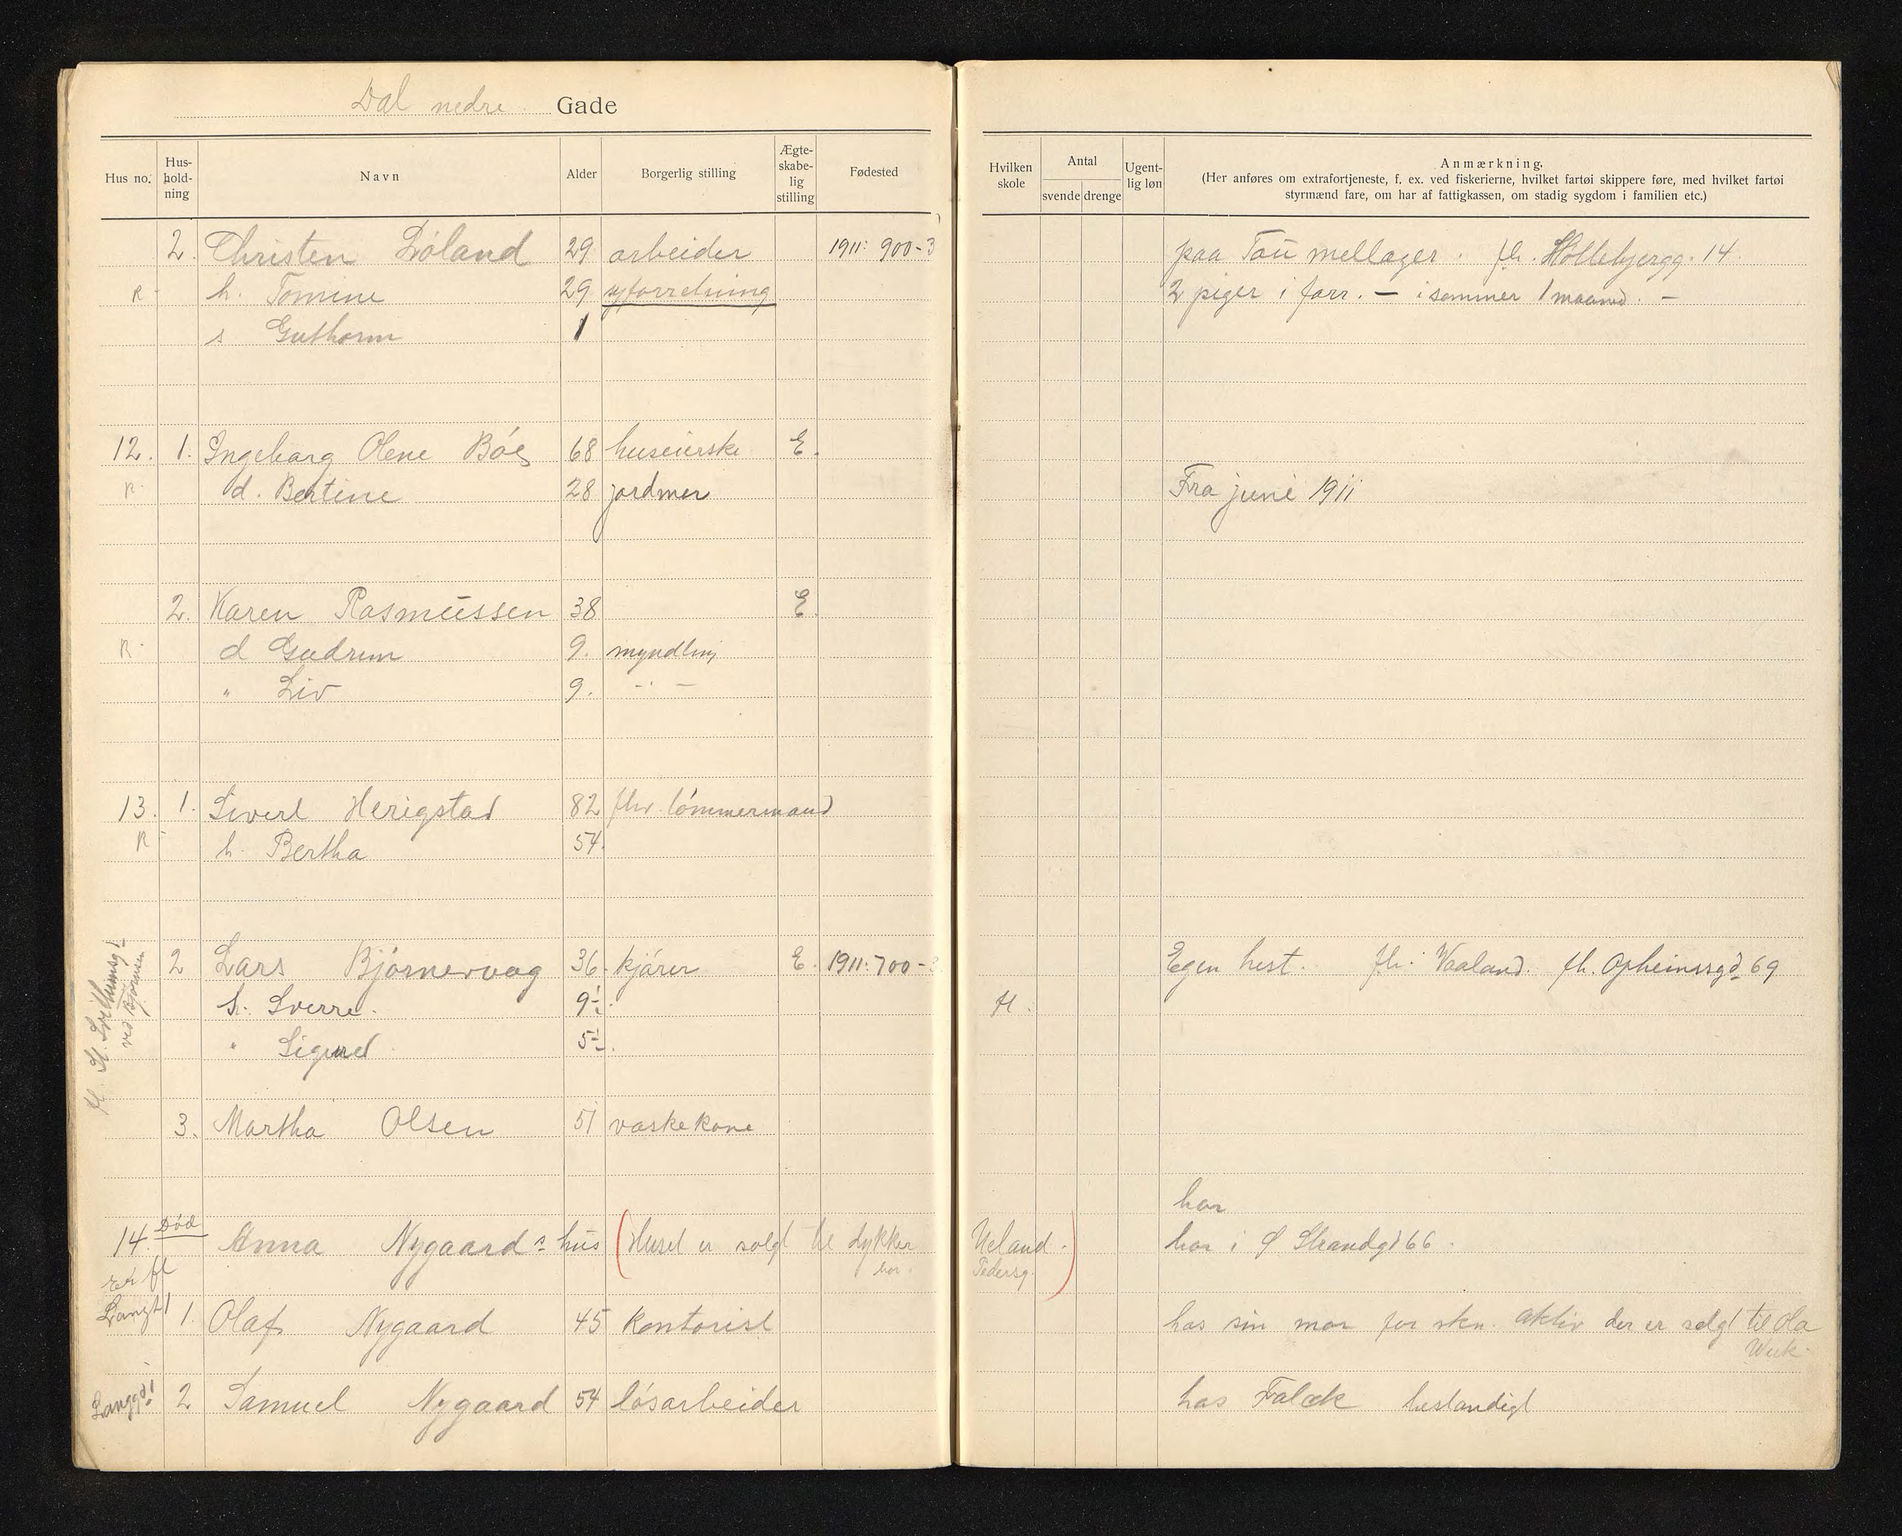 Dal nedre Gade
Hus no. Hus-hold-ning Navn Alder Borgerlig stilling Ægte-skabe-lig stilling Fødested Hvilken skole Antal svende drenge Ugent-lig løn Anmærkning.
(Her anføres om extrafortjeneste, f. ex. ved fiskerierne, hvilket fartøi skippere føre, med hvilket fartøi
styrmænd fare, om har af fattigkassen, om stadig sygdom i familien etc.)
2. Christen Løland 29 arbeider 1911: 900-3 paa Tou mellager. fh. Høllebjergg. 14
R h. Tomine 29 syforretning 2 piger i forr. — i sommer 1 maaned. —
s Guthorm 1
12. 1. Ingeborg Olene Bøe 68 huseierske E.
R d. Bertine 28 jordmor Fra juni 1911
2. Karen Rasmussen 38 E.
R d Gudrun 9. myndling
" Liv 9. -"-
13. 1. Sivert Herigstad 82 fhv. tømmermand
R h. Bertha 54
2 Lars Bjørnevaag 36 kjører E. 1911: 700-3 Egen hest. fh. Vaaland. fh. Opheimsgd 69
s. Sverre 9 H.
" Sigurd 5
3. Martha Olsen 51 vaskekone
har
14. Død Anna Nygaards hus (Huset er solgt til dykker Ueland.) har i Ø Strandgd 66.
har. Pedersg.
Langt 1 1. Olaf Nygaard 45 kontorist hos sin mor for skn. aktiv der er solgt til da
Langgd 1 2 Samuel Nygaard 54 løsarbeider hos Falck bestandigt